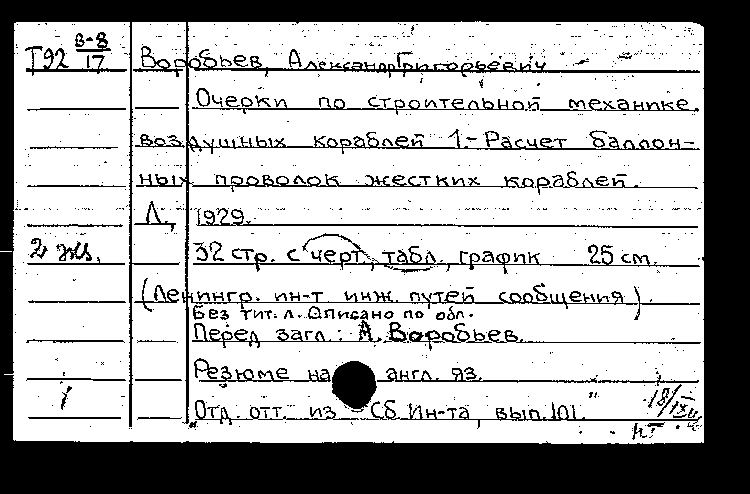 Т92 В-8/17 Воробьев, Александр Григорьевич
Очерки по строительной механике.
воздушных кораблей 1.-Расчет баллон-
ных проволок жестких кораблей.
Л., 1929.
32 стр. с черт., табл., график 25 см.
(Ленингр. ин-т инж. путей сообщения).
Без тит. л. Описано по обл.
Перед загл.: А. Воробьев.
Резюме на англ. яз.
"Отд. отт. из Сб. Ин-та, вып. 101."